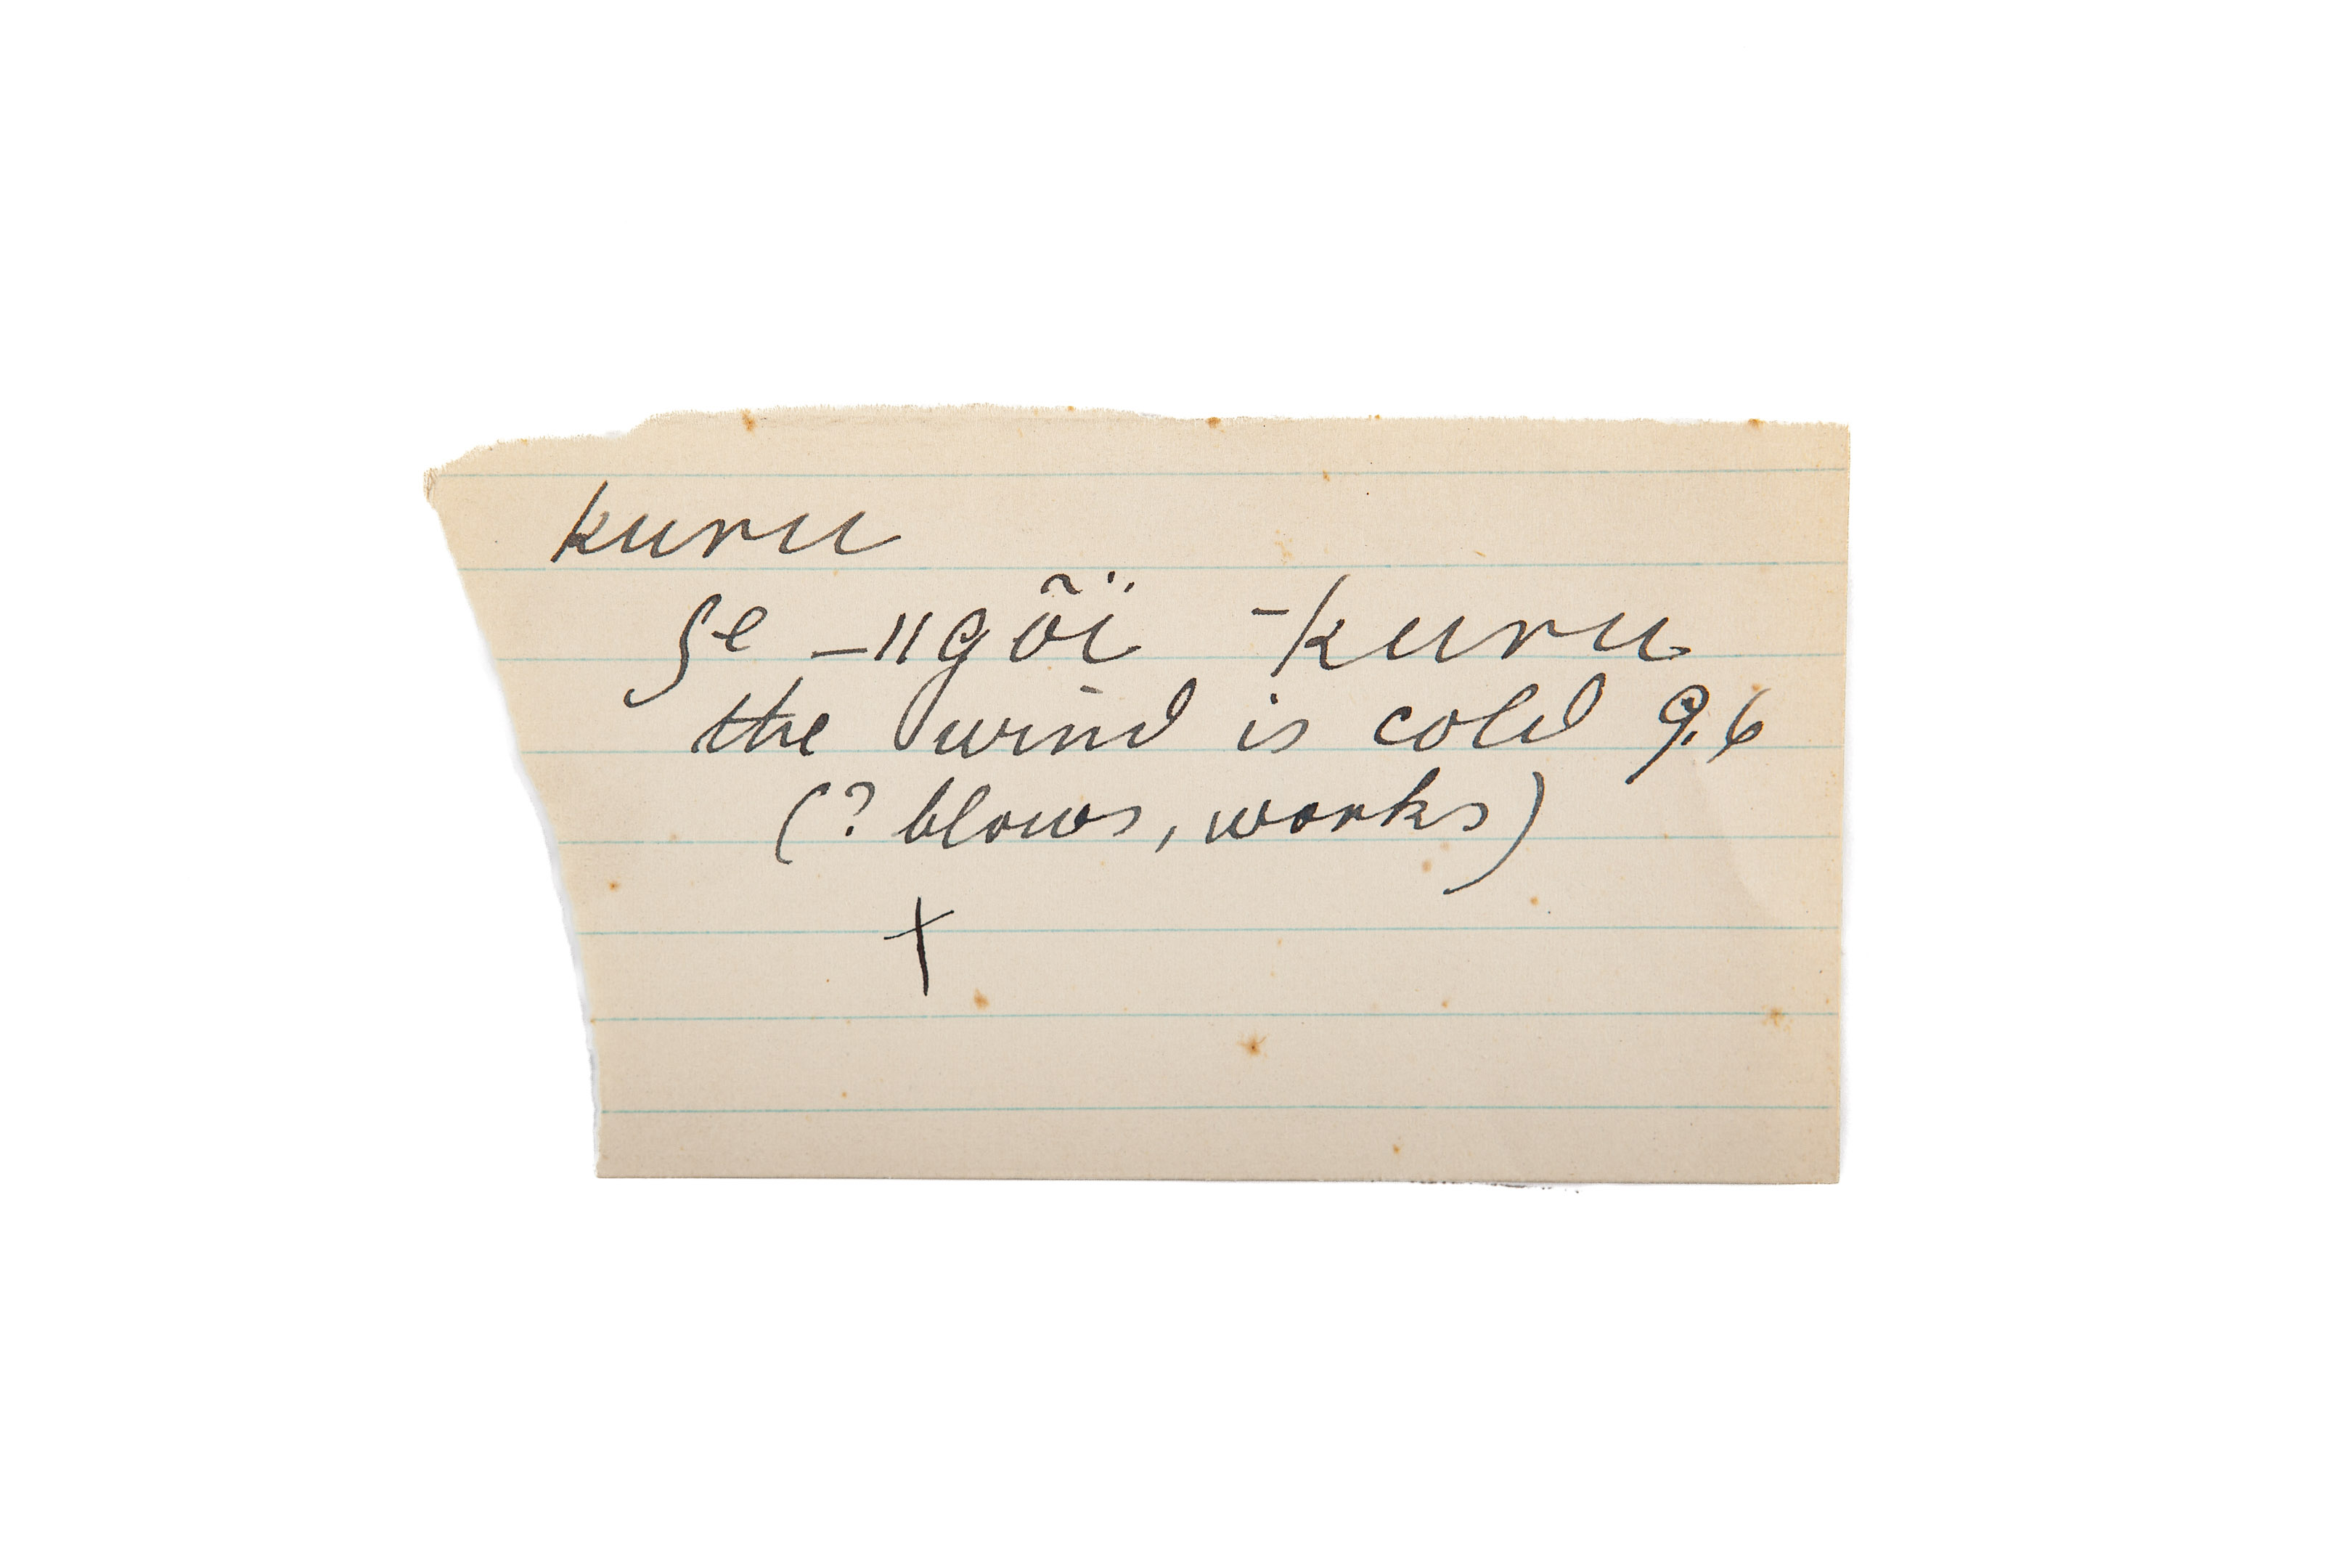 kuru
ʃe _ǁgõï ‾kuru
the wind is cold 9.6
(? blows, works)
+